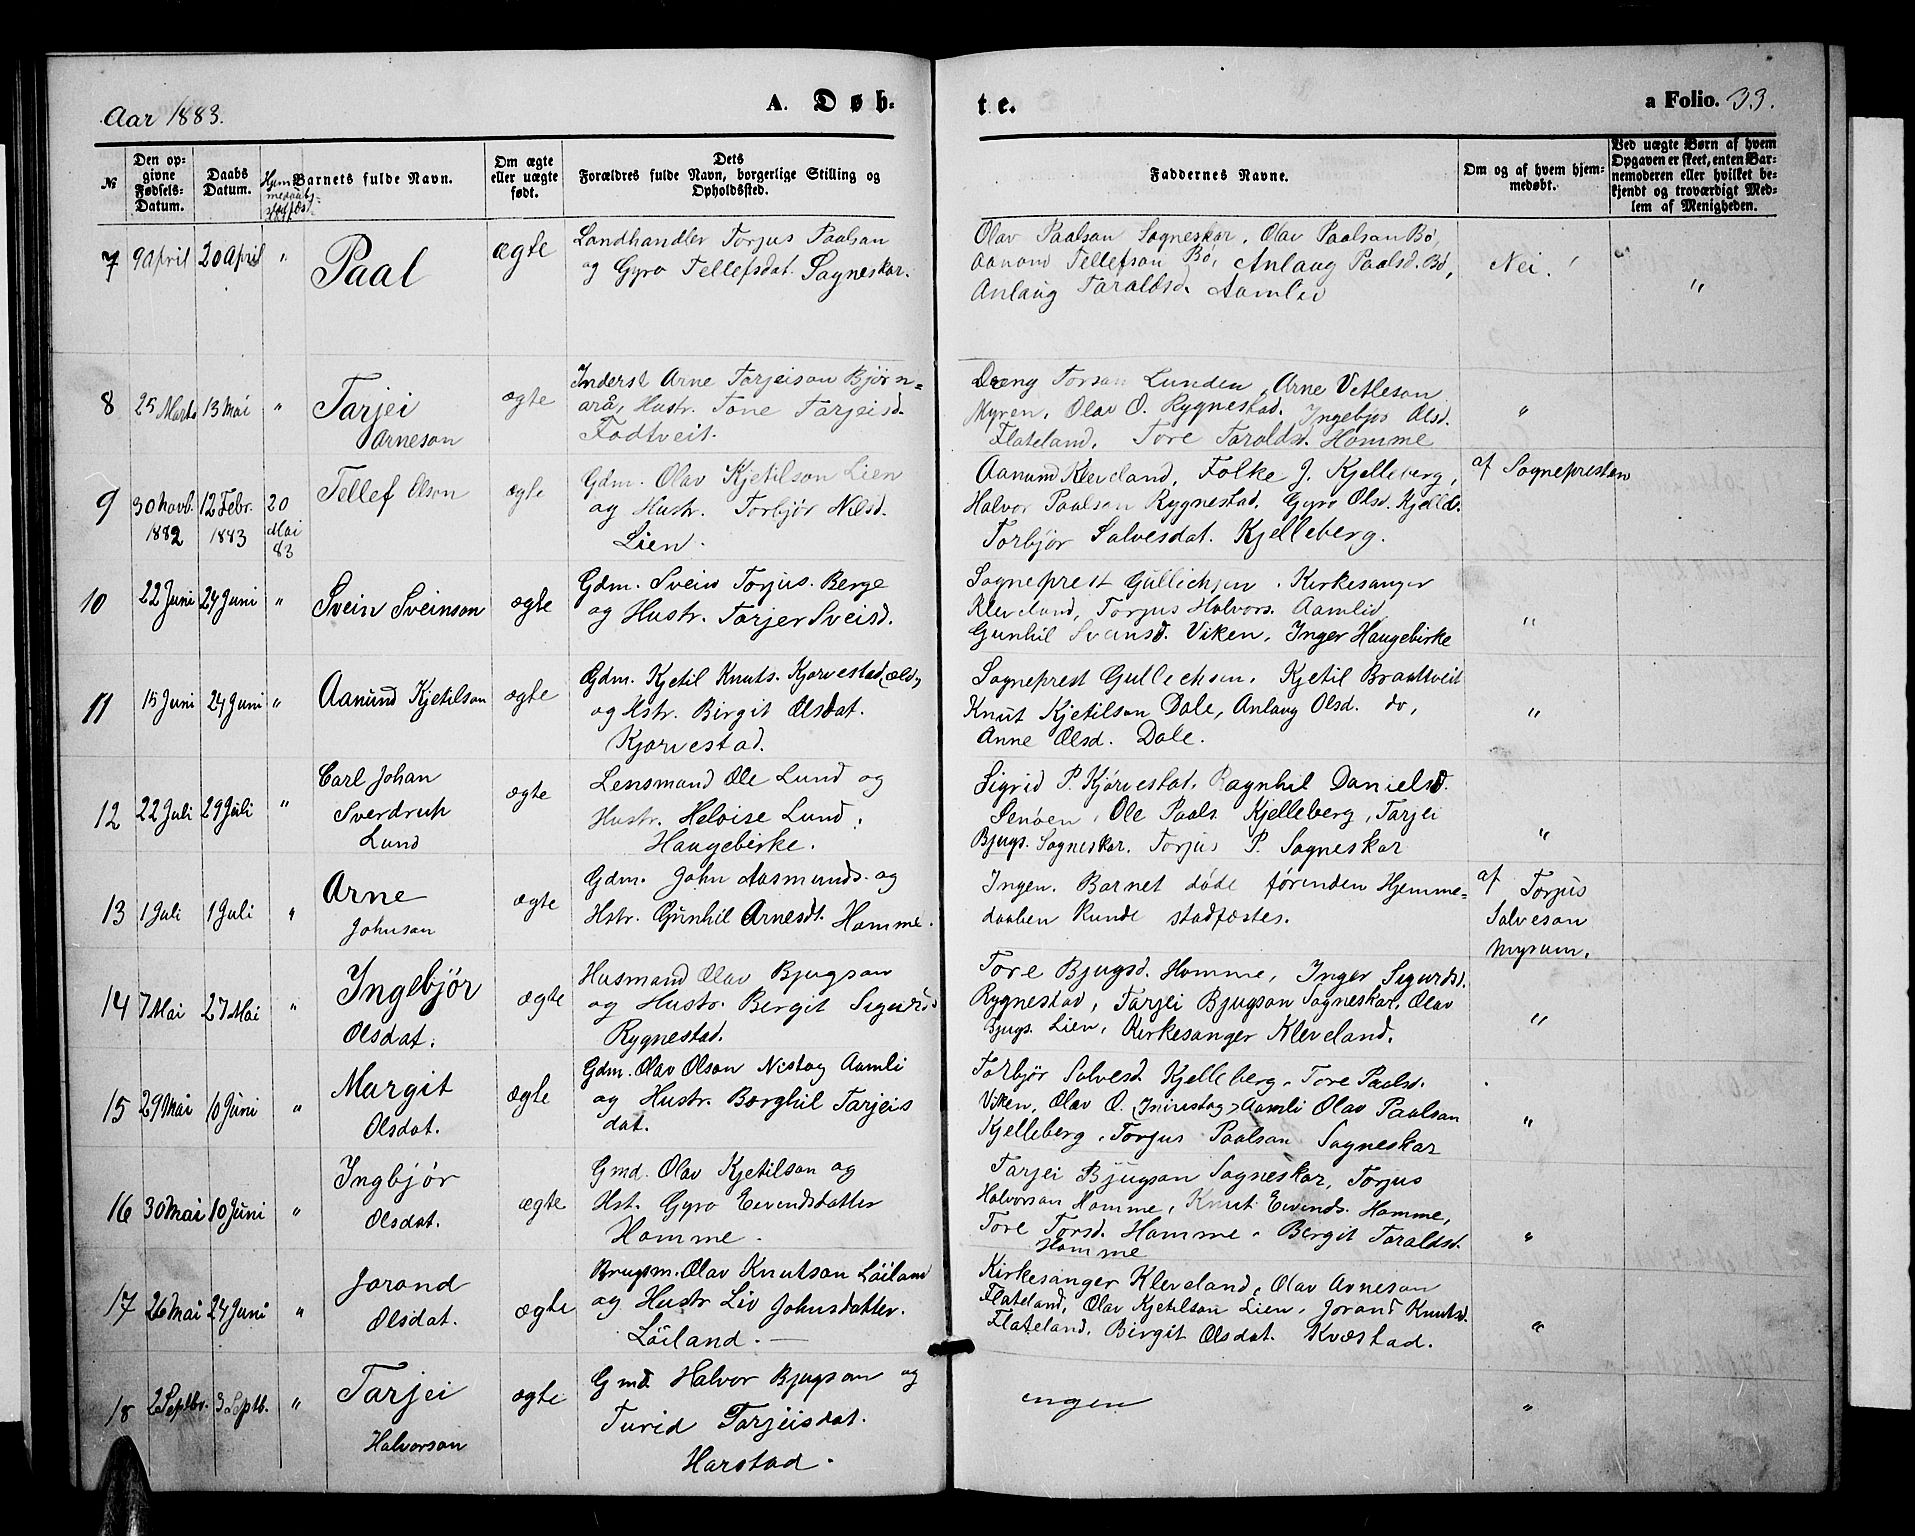 Aar 1883.
A. Døb-
te.
a Folio. 33.
№
Den op-
givne
Fødsels-
Datum.
Daabs
Datum.
Hjemmedaabs
stadfæst
Barnets fulde Navn.
Om ægte
eller uægte
født.
Dets
Forældres fulde Navn, borgerlige Stilling og
Opholdssted.
Faddernes Navne.
Om og af hvem hjem-
medøbt.
Ved uægte Børn af hvem
Opgaven er skeet, enten Bar-
nemoderen eller hvilket be-
kjendt og troværdigt Med-
lem af Menigheden.
7 9 April 20 April " Paal ægte
Landhandler Torjus Paalsan
og Gyro Tellefsdat. Sagneskar.
Olav Paalsan Sagneskar, Olav Paalsan Bø,
Aanund Tellefsan Bø, Anlaug Paalsd. Bø,
Anlaug Taraldsd. Aamlid
Nei! "
8 25 Marts 13 Mai " Tarjei
Arneson
ægte
Inderst Arne Tarjeison Bjørn-
arå, Hustr. Tone Tarjeisd.
Fodtveit.
Dreng Torsan Lunden, Arne Vetleson
Myren, Olav O. Rygnestad. Ingebjør Olsd.
Flateland, Tore Taraldsd. Homme
"
9 30 Novb. 1882 12 Febr. 1883 20 Mai 83
Tellef Olson ægte
Gdm. Olav Kjetilson Lien
og Hustr. Torbjør Nilsd.
Lien.
Aanund Kleveland, Folke J. Kjelleberg,
Halvor Paalson Rygnestad, Gyro Olsd. Kjelleb.
Torbjør Salvesdat. Kjelleberg.
af Sognepresten
10 22 Juni 24 Juni " Svein Sveinson ægte
Gdm. Svein Torjus. Berge
og Hustr. Tarjer Sveisd.
Sogneprest Gullichsen, Kirkesanger
Kleveland, Torjus Halvors. Aamlid
Gunhil Svensd. Viken, Inger Haugebirke
"
11 15 Juni 24 Juni " Aanund Kjetilson ægte
Gdm. Kjetil Knuts. Kjørvestad (æld)
og Hstr. Birgit Olsdat.
Kjørvestad.
Sogneprest Gullichsen, Kjetil Braatveit
Knut Kjetilson Dale, Anlaug Olsd. do,
Anne Olsd. Dale.
"
12 22 Juli 29 Juli " Carl Johan
Sverdrup
Lund
ægte
Lensmand Ole Lund og
Hustr. Heloise Lund,
Haugebirke.
Sigrid P. Kjørvestat, Ragnhil Danielsd.
Senøen, Ole Paals. Kjelleberg, Tarjei
Bjugs. Sagneskar, Torjus P. Sagneskar
"
13 1 Juli 1 Juli " Arne
Johnson
ægte
Gdm. John Aasmunds. og
Hstr. Gunhil Arnesdt. Homme.
Ingen. Barnet døde førinden Hjemme-
daaben kunde stadfæstes.
af Torjus
Salveson
Mysum.
14 7 Mai 27 Mai " Ingebjør
Olsdat.
ægte
Husmand Olav Bjugson
og Hustr. Bergit Sigurds
Rygnestad.
Tore Bjugsd. Homme, Inger Sigurdsd.
Rygnestad, Tarjei Bjugson Sagneskar, Olav
Bjugs. Lien, Kirkesanger Kleveland.
"
15 29 Mai 10 Juni " Margit
Olsdat.
ægte
Gdm. Olav Olson Nistog Aamli
og Hustr. Borghil Tarjeis
dat.
Torbjør Salvesd. Kjelleberg, Tore Paalsd.
Viken, Olav O. (Inirestog) Aamli Olav Paalson
Kjelleberg, Torjus Paalsan Sagneskar
"
16 30 Mai 10 Juni " Ingbjør
Olsdat.
ægte
Gmd. Olav Kjetilson og
Hst. Gyro Eevendsdatter
Homme.
Tarjei Bjugson Sagneskar, Torjus
Halvorsan Homme, Knut Evinds. Homme,
Tore Torsd. Homme, Bergit Taraldsd.
Homme
"
17 26 Mai 24 Juni " Jorand
Olsdat.
ægte
Brugsm. Olav Knutson Løiland
og Hustr Liv Johnsdatter.
Løiland. —
Kirkesanger Kleveland, Olav Arneson
Flateland, Olav Kjetilson Lien, Jorand Knutsd.
Flateland, Birgit Olsdat. Kvæstad.
"
18 2 Septbr. 3 Septb. " Tarjei
Halvorson
ægte
Gmd. Halvor Bjugson og
Turid Tarjeisdat.
Harstad.
ingen
"